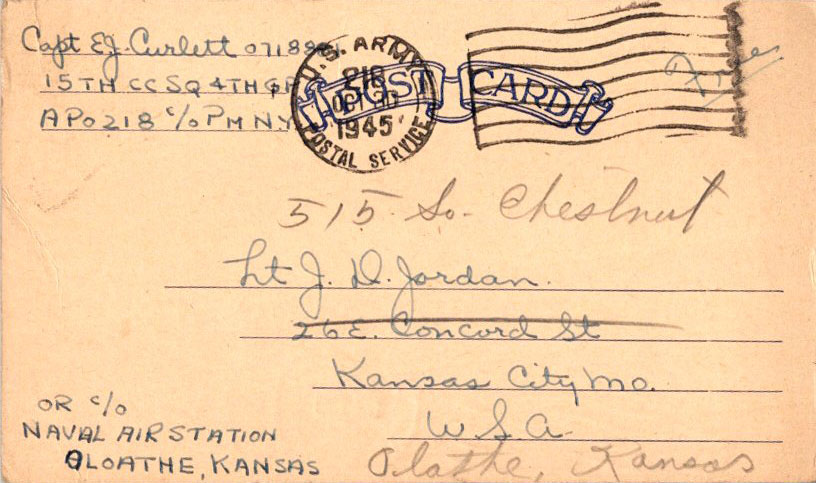 Capt E.J. Curlett
15TH CC SQ 4TH GP
APO 218 c/o PM N.Y.
U.S. ARMY
218
OCT
1945
POSTAL SERVICE
POST CARD
Free
515 So. Chestnut
Lt J. D. Jordan.
26 E. Concord St
Kansas City Mo.
U.S.A.
OR c/o
NAVAL AIR STATION
OLOATHE, KANSAS
Olathe, Kansas